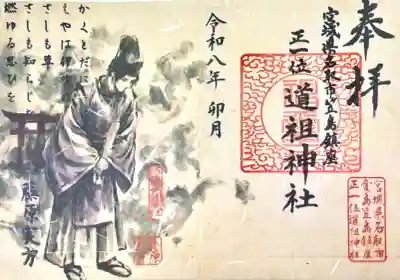 奉拝
宮城県名取市笠島鎮座
正一位
道祖神社
宮城県名取市
愛島笠島鎮座
正一位道祖神社
令和八年 卯月
かくとだに
えやは伊吹の
さしも草
さしも知らじな
燃ゆる思ひを
藤原実方